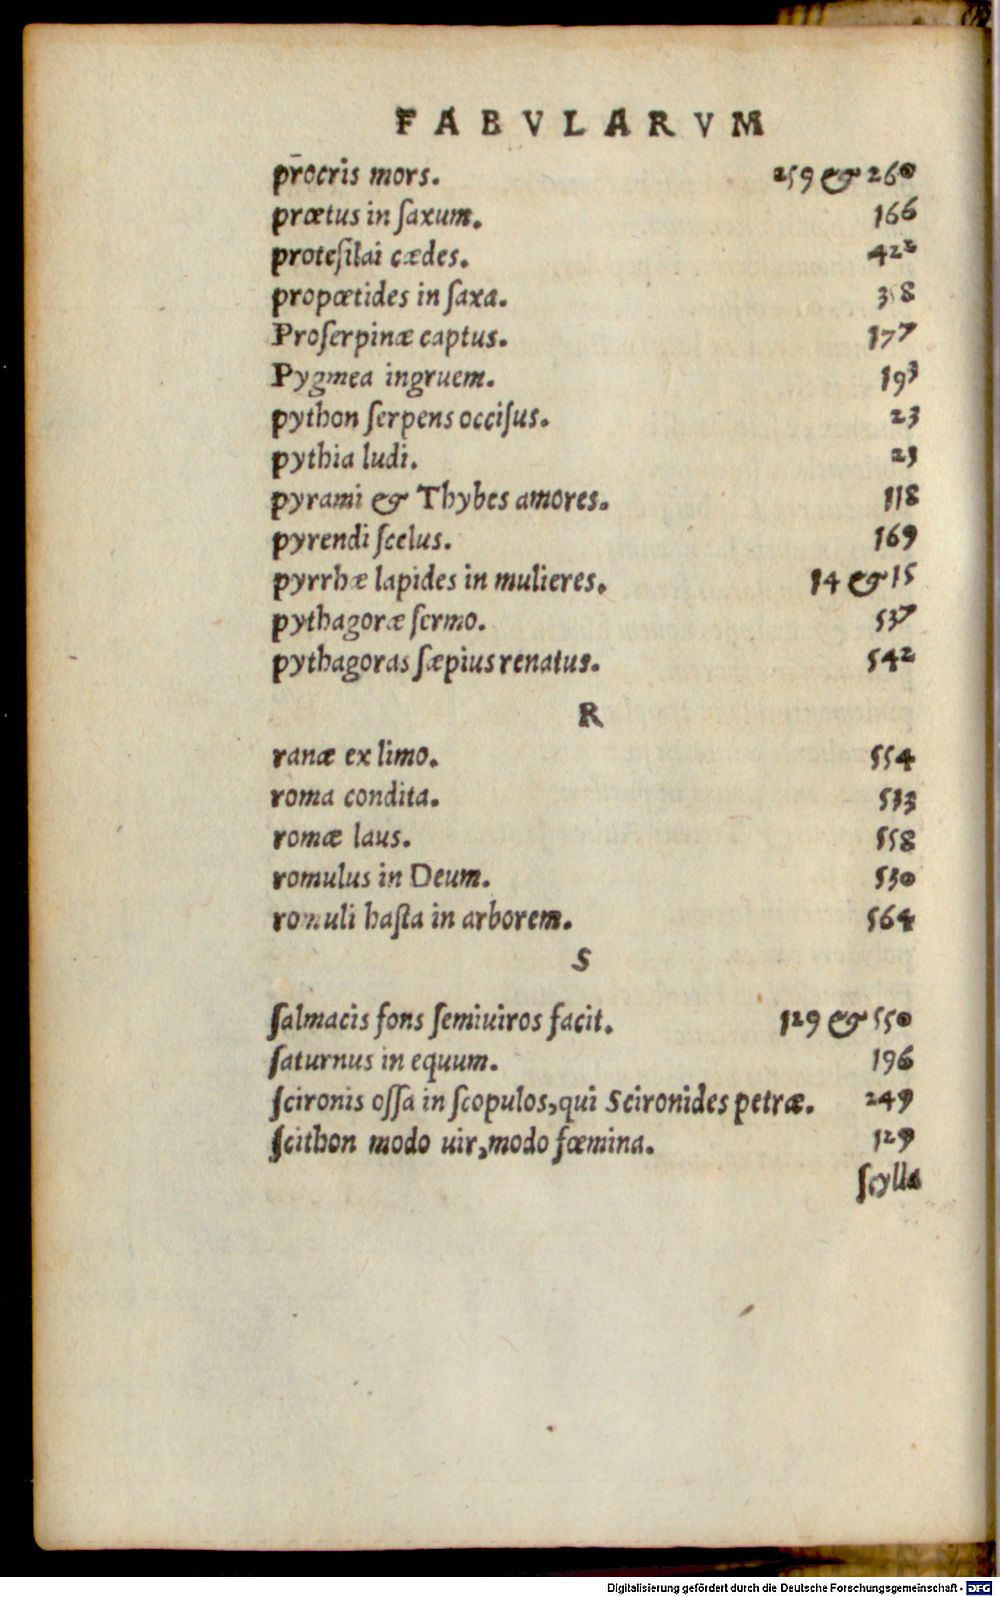 FABVLARVM
procris mors. 259 & 260
prœtus in ſaxum. 166
proteſilai cædes. 422
propœtides in ſaxa. 358
Proſerpinæ captus. 177
Pygmea ingruem. 193
python ſerpens occiſus. 23
pythia ludi. 23
pyrami & Thybes amores. 118
pyrendi ſcelus. 169
pyrrhæ lapides in mulieres. 14 & 15
pythagoræ ſermo. 537
pythagoras ſæpius renatus. 542
R
ranæ ex limo. 554
roma condita. 533
romæ laus. 558
romulus in Deum. 530
romuli haſta in arborem. 564
S
ſalmacis fons ſemiuiros facit. 129 & 550
ſaturnus in equum. 196
ſcironis oſſa in ſcopulos, qui Scironides petræ. 249
ſcithon modo uir, modo fœmina. 129
ſcylla
Digitalisierung gefördert durch die Deutsche Forschungsgemeinschaft - DFG